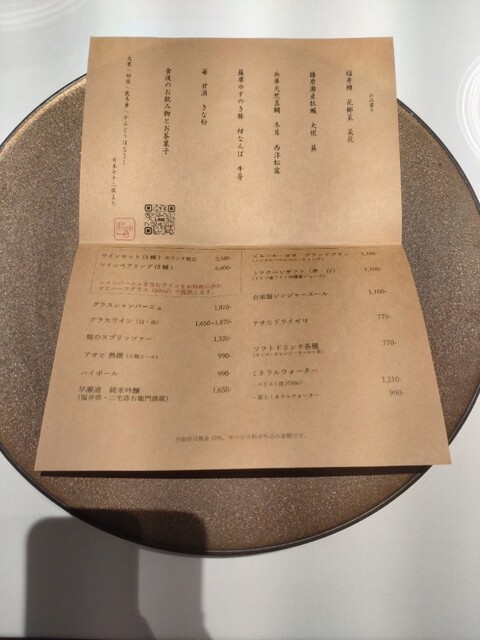 お品書き
福井鰆 花椰菜 菜花
播磨灘産牡蠣 大根 蕪
兵庫天然真鯛 冬茸 西洋松露
薩摩ゆすのき豚 柑なんば 牛蒡
苺 甘酒 きな粉
食後のお飲み物とお茶菓子
日本七十二候より
LINE
ワインセット(3種)
3,500-
ワインペアリング(5種)
6,600-
グラスシャンパーニュ
1,870-
グラスワイン (白・赤)
1,650~1,870-
桜のスプリッツァー
1,320-
アサヒ 熟撰 (小瓶ビール)
990-
ハイボール
990-
早瀬浦 純米吟醸
1,650-
(福井県・三宅彦右衛門酒蔵)
1,100-
トラウベンザフト (赤・白)
1,100-
自家製ジンジャーエール
1,100-
アサヒドライゼロ
770-
ソフトドリンク各種
770-
ミネラルウォーター
1,210-
990-